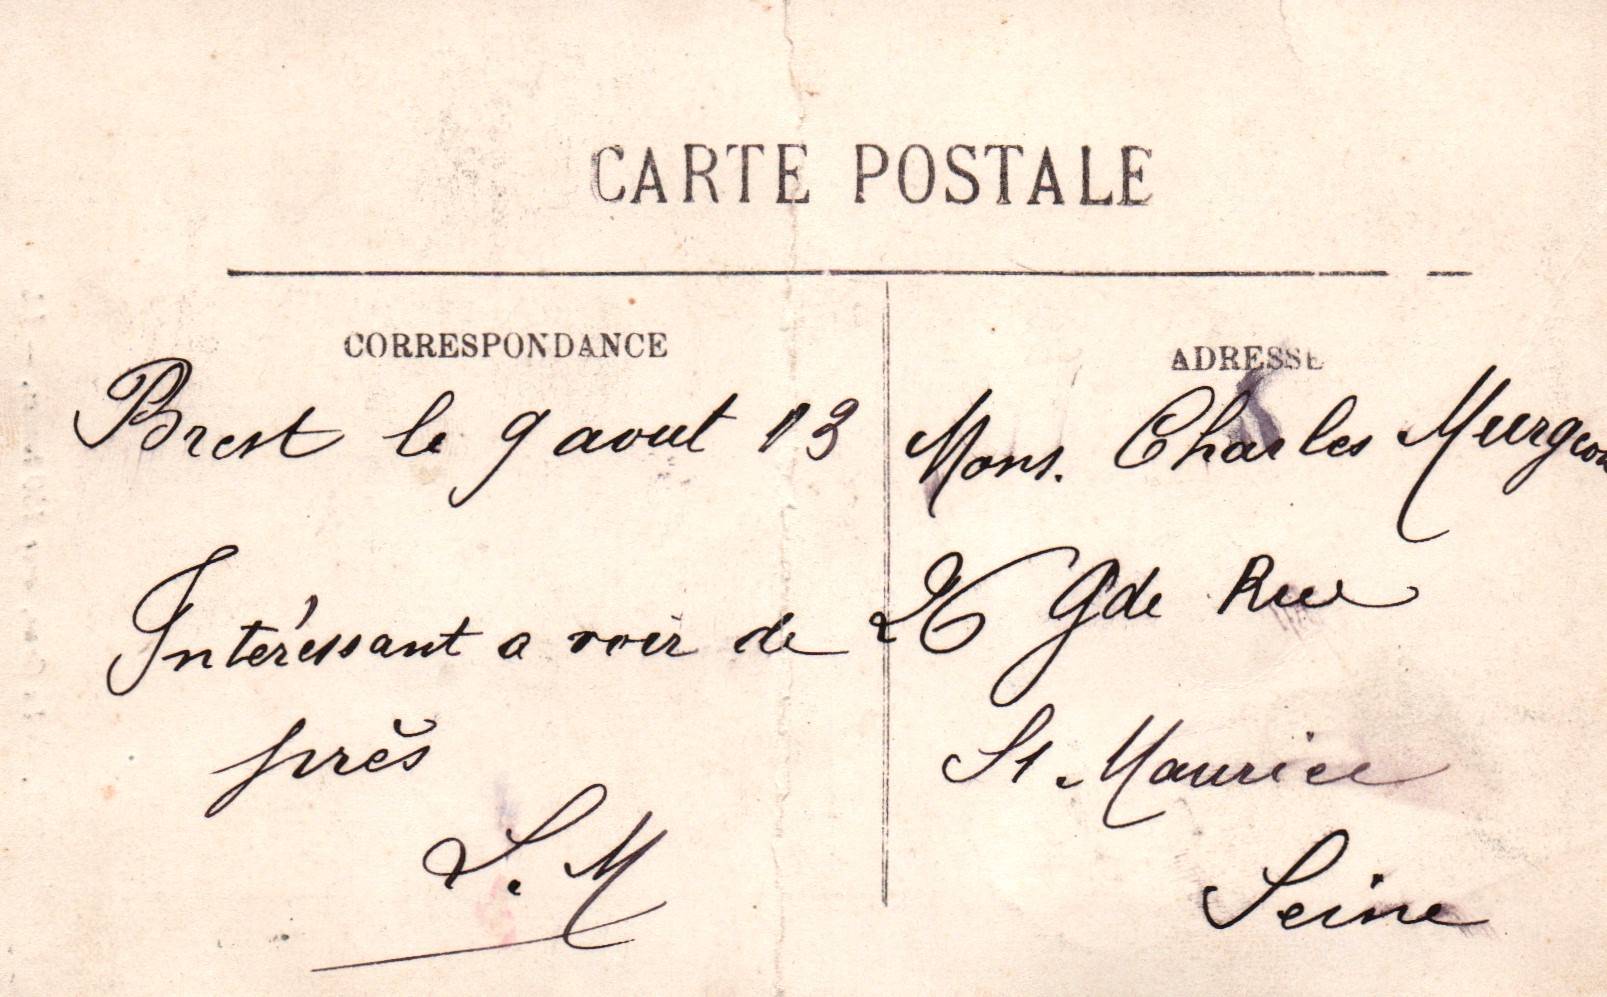 CARTE POSTALE
CORRESPONDANCE
Brest le 9 aout 13
Intéressant a voir de
près
S. M
ADRESSE
Mons. Charles
26 Gde Rue
St. Maurice
Seine